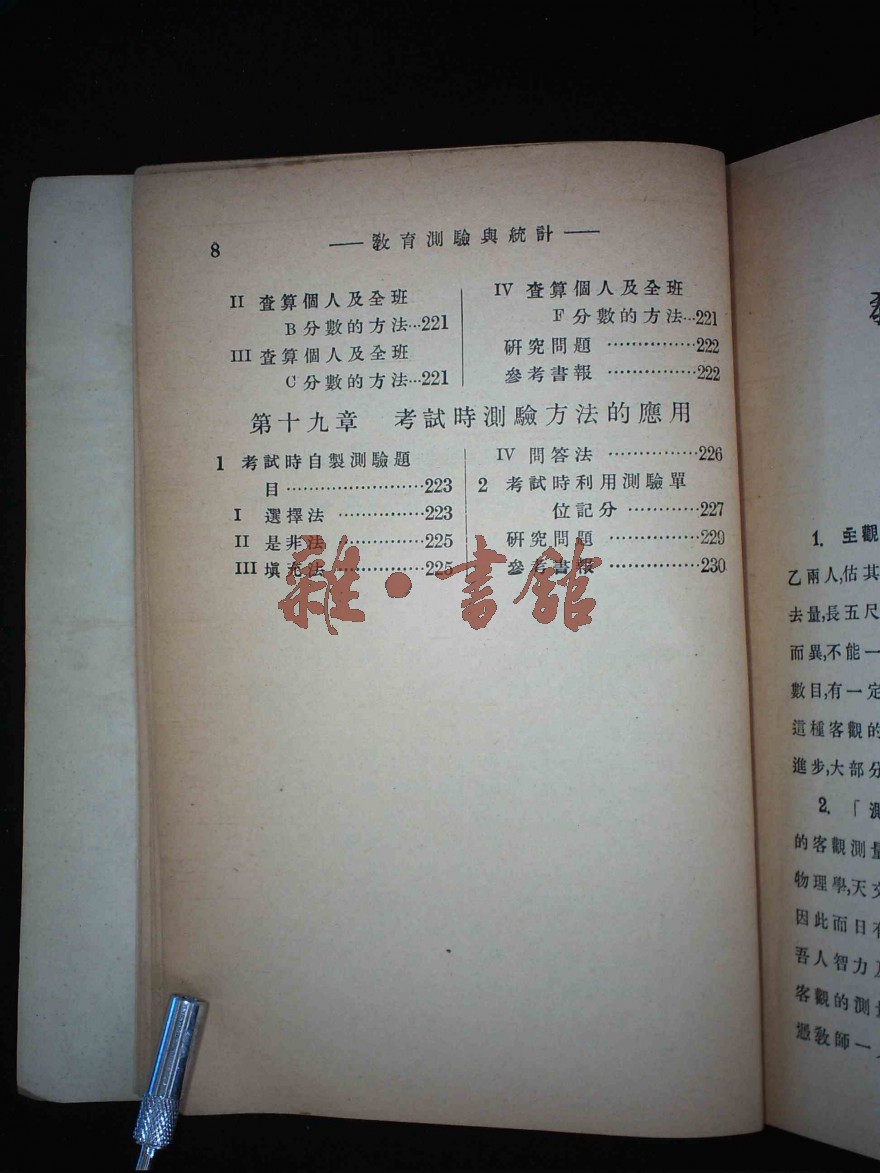 8
—— 教育測驗與統計 ——
II 查算個人及全班
B分數的方法…221
III 查算個人及全班
C分數的方法…221
IV 查算個人及全班
F分數的方法…221
研究問題 ……………222
參考書報 ……………222
第十九章 考試時測驗方法的應用
1 考試時自製測驗題
目……………………223
I 選擇法 ……………223
II 是非法 ……………225
III 填充法……………225
IV 問答法 ……………226
2 考試時利用測驗單
位記分 …………227
研究問題 ……………229
參考書報 ……………230
雜·書館
1. 主觀
乙兩人,估其
去量,長五尺
而異,不能一
數目,有一定
這種客觀的
進步,大部分
2. 「測
的客觀測量
物理學,天文
因此而日
吾人智力
客觀的測量
憑教師一